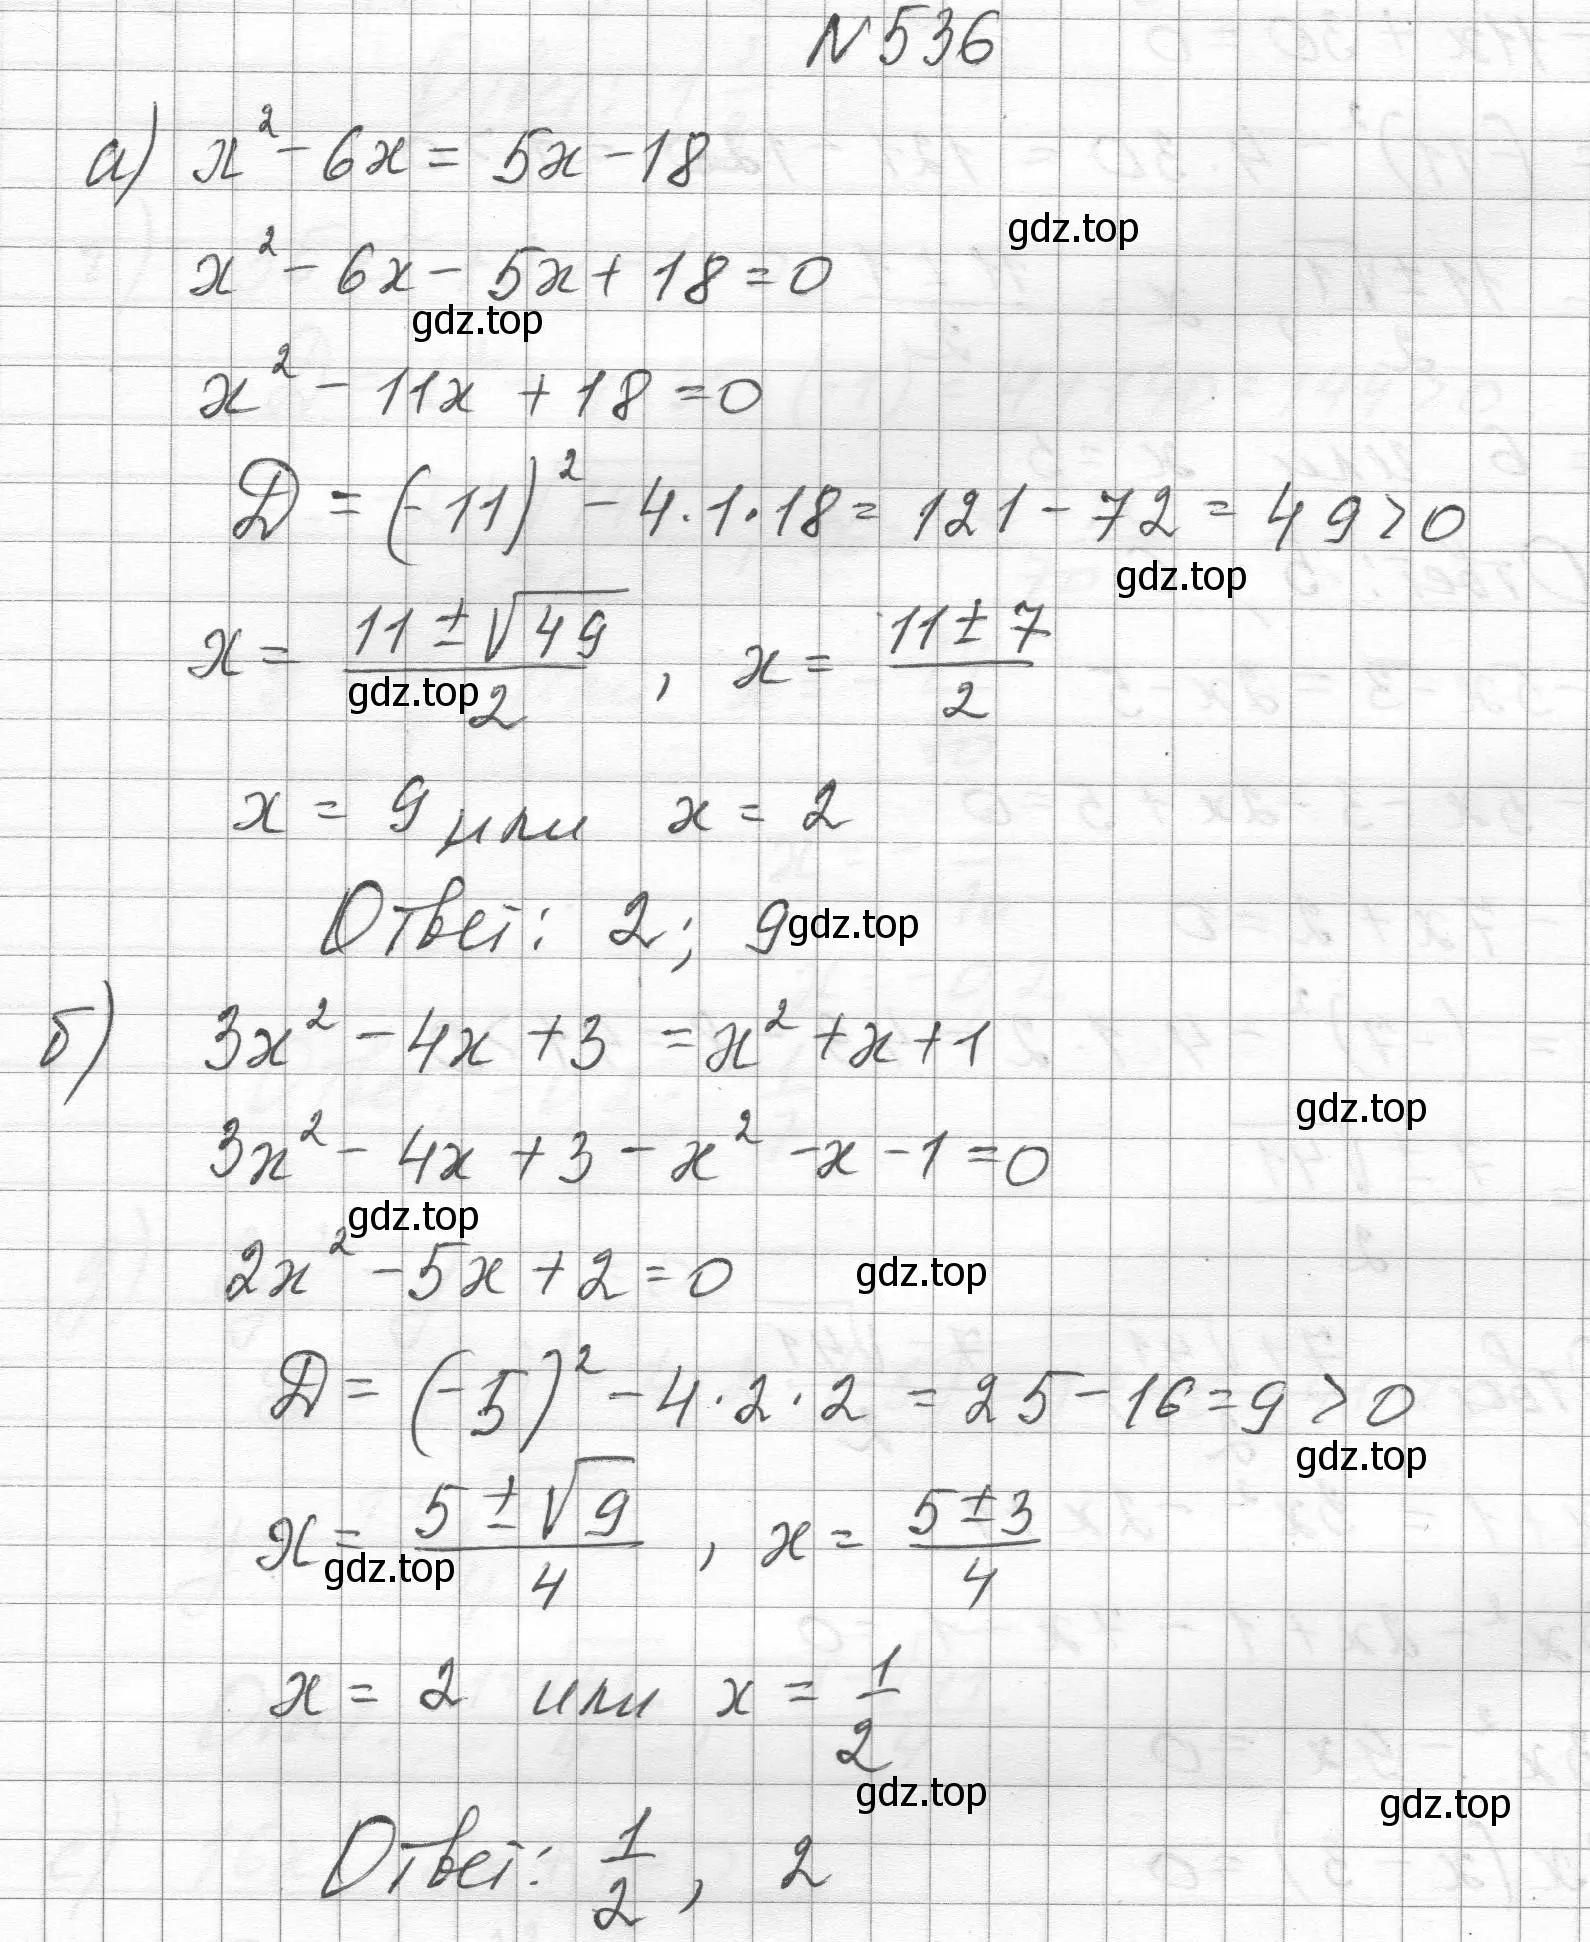 N 536
а) x² - 6x = 5x - 18
gdz.top
x² - 6x - 5x + 18 = 0
gdz.top
x² - 11x + 18 = 0
D = (-11)² - 4·1·18 = 121 - 72 = 49 > 0
gdz.top
x = (11 ± √49)/2 , x = (11 ± 7)/2
gdz.top
x = 9 или x = 2
Ответ: 2; 9
gdz.top
б) 3x² - 4x + 3 = x² + x + 1
gdz.top
3x² - 4x + 3 - x² - x - 1 = 0
gdz.top
2x² - 5x + 2 = 0
gdz.top
D = (-5)² - 4·2·2 = 25 - 16 = 9 > 0
gdz.top
x = (5 ± √9)/4 , x = (5 ± 3)/4
gdz.top
x = 2 или x = 1/2
gdz.top
gdz.top
Ответ: 1/2, 2